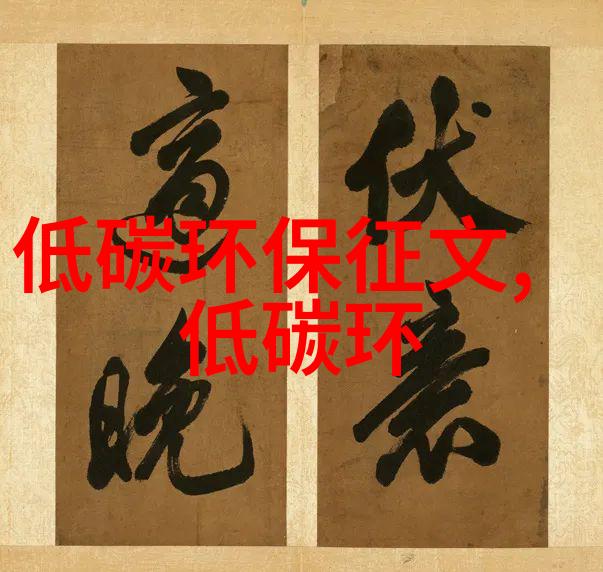 低碳环保征文,
低碳环
伏
晚